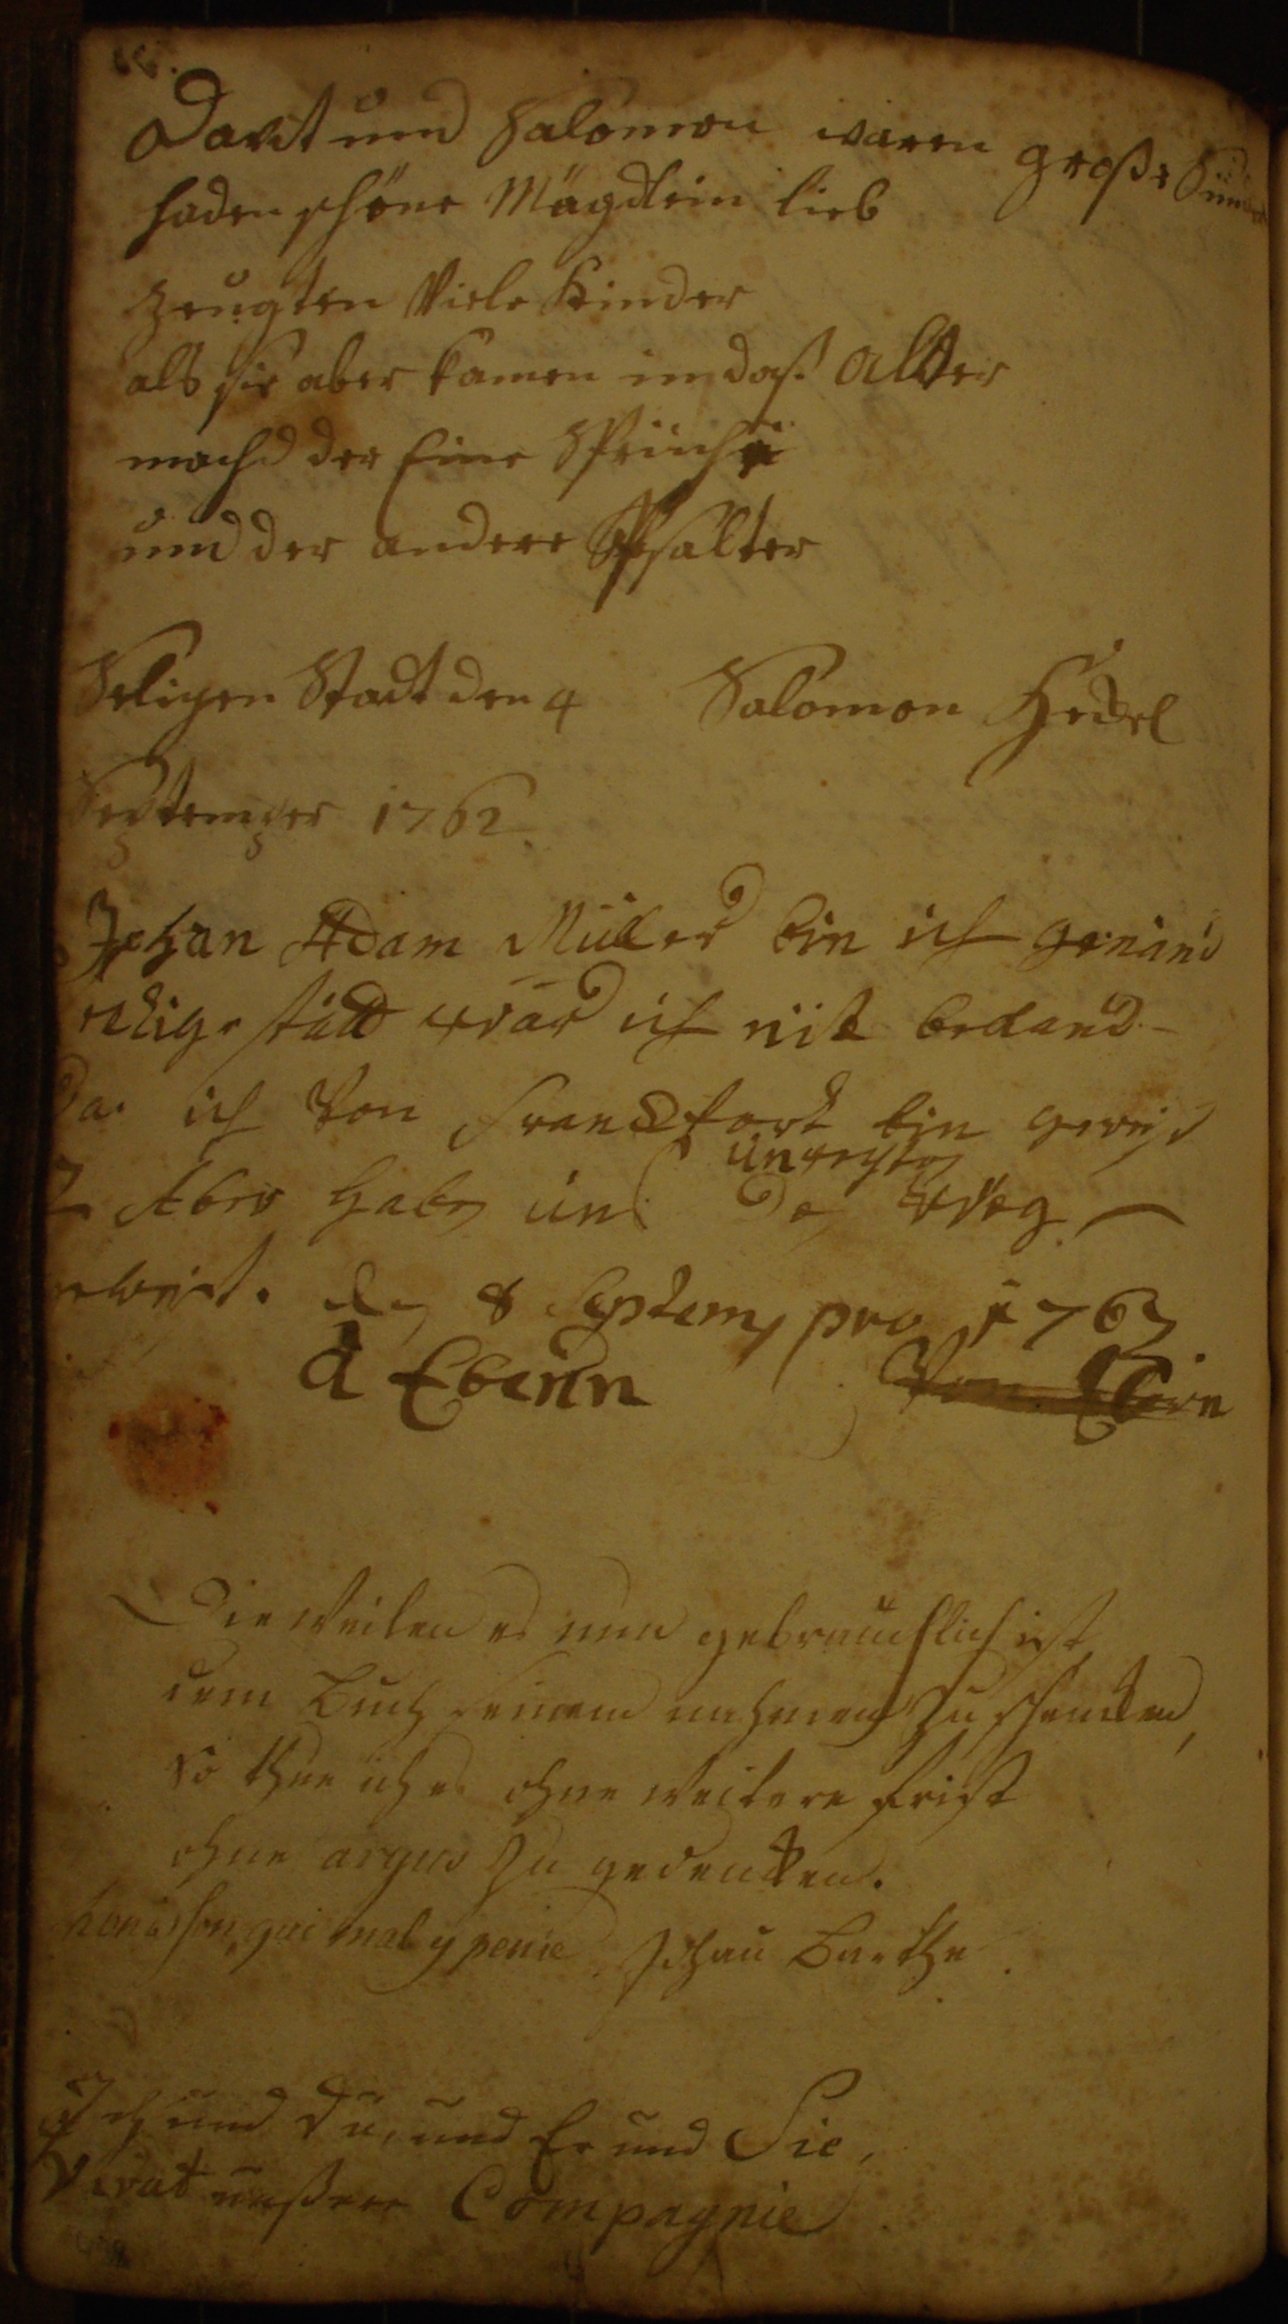 Davit und Salomon waren große Sünder
haden schöne Mägdlein lieb
zeugten Viele Kinder
als sie aber kamen in daß Alter
machd der Eine Sprüch
und der andere Psalter
Seligen Stadt den 4 Salomon Heckel
September 1762
Johan Adam Müller bin ich genand
ich nit bekand
Da ich Von Franckfort bin gereist
Aber habe uns unrechten Weg
den 8 September 176
Von
Die Weilen es nun gebrauchlich ist
dem Buch seinem nahmen zu schencken,
so thue ich es ohne weitere frist
ohne arges zu gedencken.
honi soi qui mal y pense Johan Barthe
Ich und Du, und Er und Sie,
Vivat unßere Compagnie